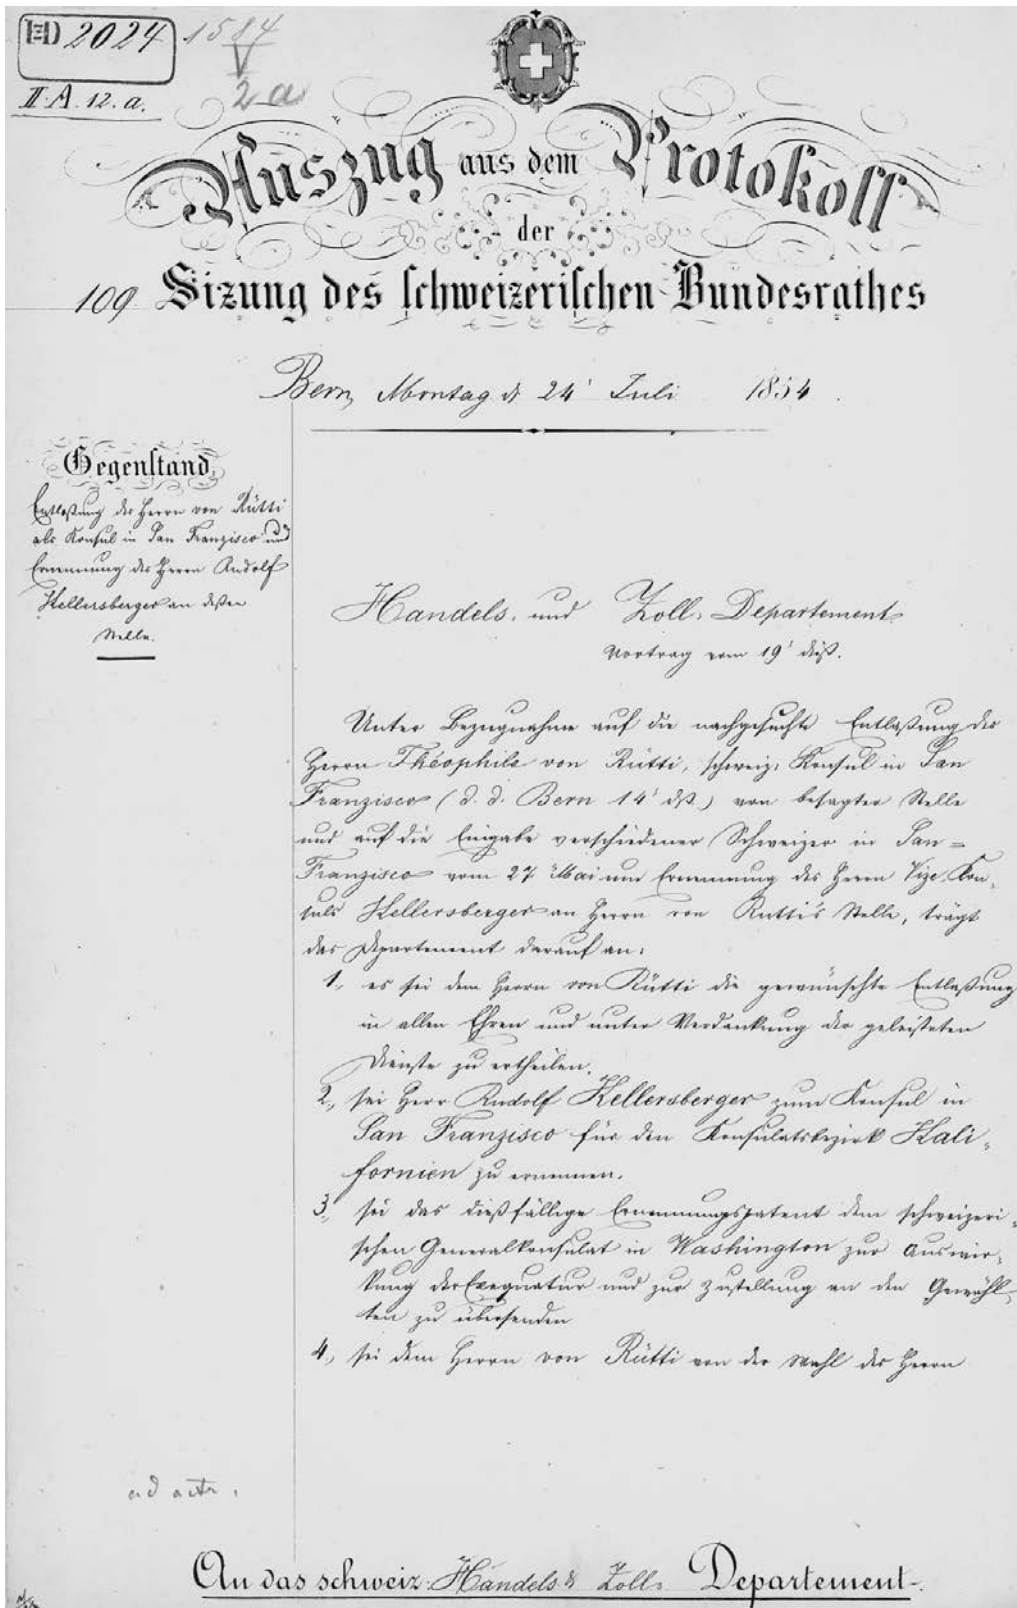 HD 2024
1584
2a
II. A. 12. a.
Auszug aus dem Protokoll
der
109. Sizung des schweizerischen Bundesrathes
Bern, Montag d 24' Juli 1854.
Gegenstand.
Entlaßung des Herrn von Rütti
als Konsul in San Franzisco und
Ernennung des Herrn Rudolf
Kellersberger an deßen
Stelle.
Handels- und Zoll-Departement.
Vortrag vom 19' dieß.
Unter Bezugnahme auf die nachgesuchte Entlaßung des
Herrn Théophile von Rütti, schweiz. Konsul in San
Franzisco (d. d. Bern 14' dß.) von besagter Stelle
und auf die Eingabe verschiedener Schweizer in San-
Franzisco vom 27 Mai um Ernennung des Herrn Vize-Kon-
suls Kellersberger an Herrn von Rutti's Stelle, trägt
das Departement darauf an:
1., es sei dem Herrn von Rütti die gewünschte Entlaßung
in allen Ehren und unter Verdankung der geleisteten
Dienste zu ertheilen.
2., sei Herr Rudolf Kellersberger zum Konsul in
San Franzisco für den Konsulatsbezirk Kali-
fornien zu ernennen.
3., sei das dießfällige Ernennungspatent dem schweizeri-
schen Generalkonsulat in Washington zur Auswir-
kung des Exequatur und zur Zustellung an den Gewähl-
ten zu übersenden
4., sei dem Herrn von Rütti von der Wahl des Herrn
ad acta.
An das schweiz. Handels & Zoll- Departement.